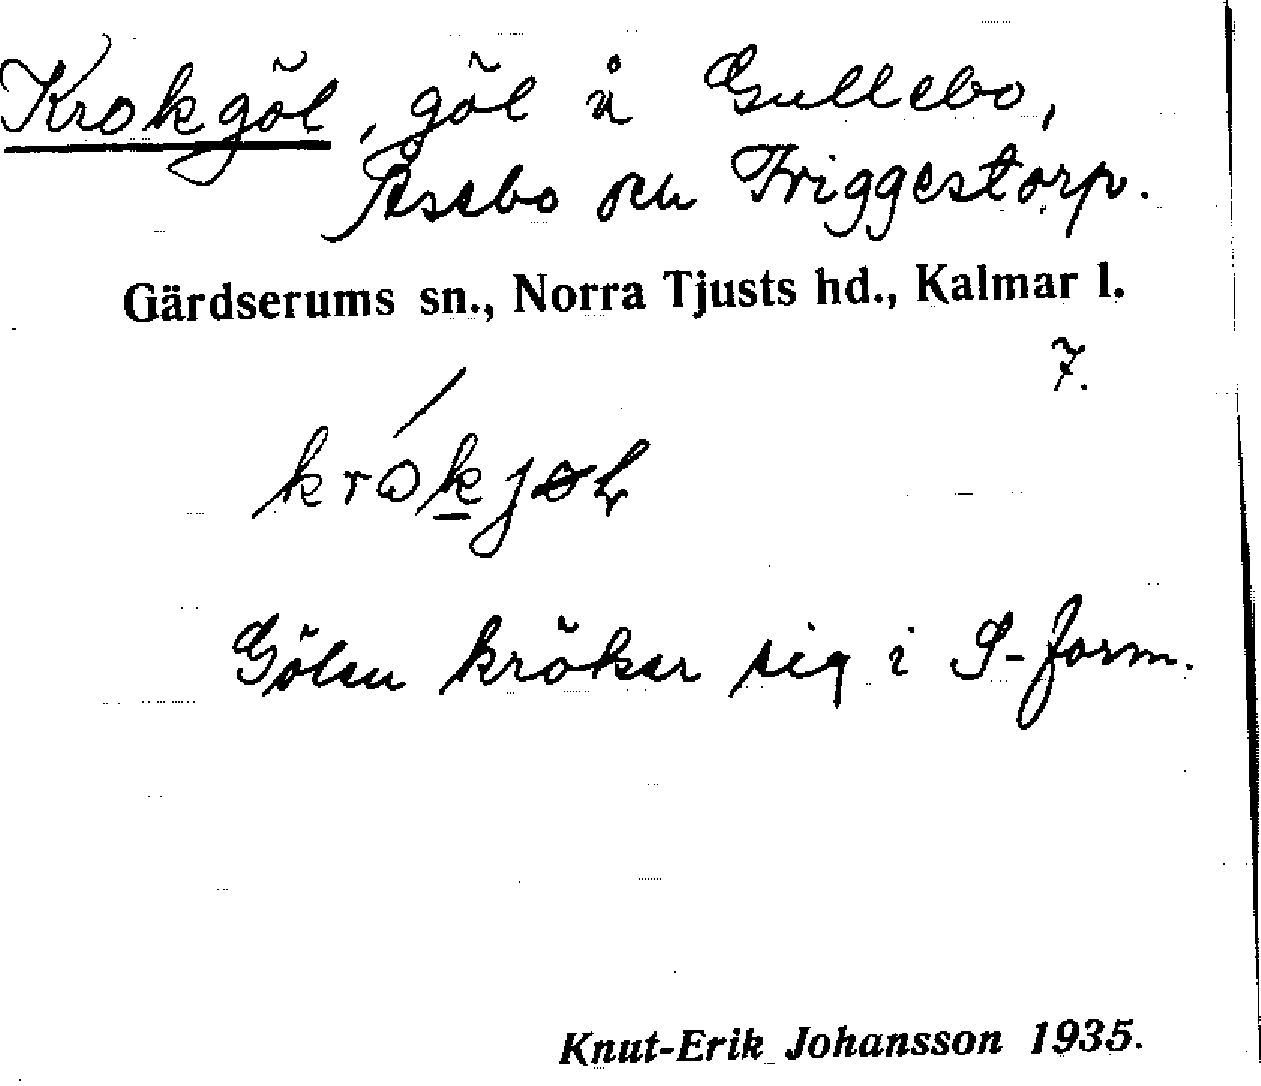 Krokgöl, göl å Gullebo,
Åssbo och Friggestorp.
Gärdserums sn., Norra Tjusts hd., Kalmar l.
7.
Gölen kröker sig i S-form.
Knut-Erik Johansson 1935.